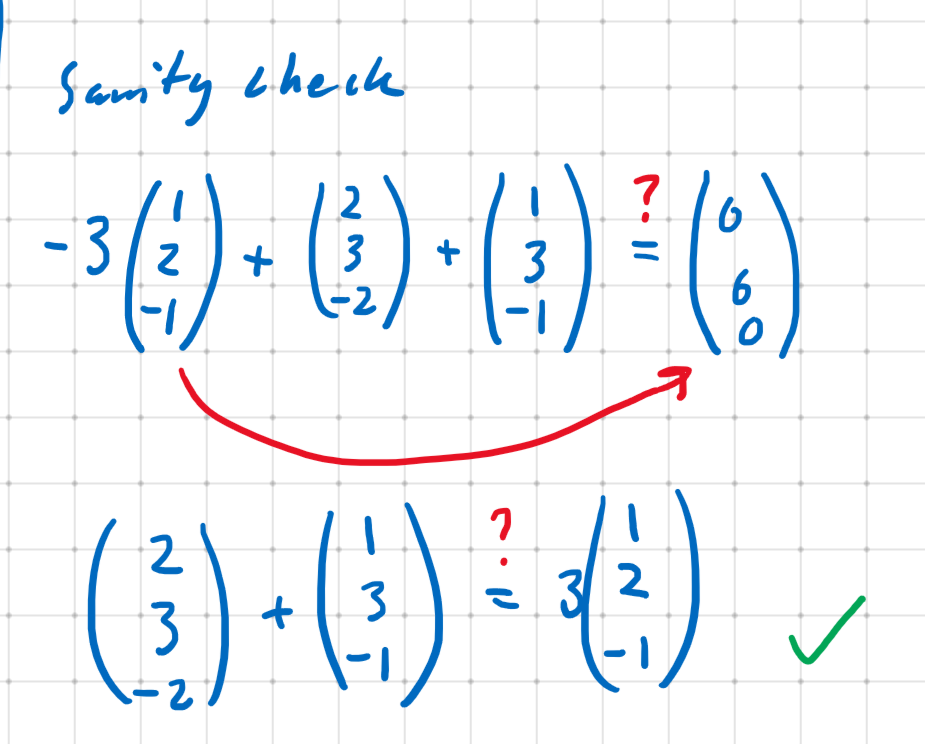 Sanity check
-3 (1 2 -1) + (2 3 -2) + (1 3 -1) ?= (0 6 0)
(2 3 -2) + (1 3 -1) ?= 3 (1 2 -1) ✓